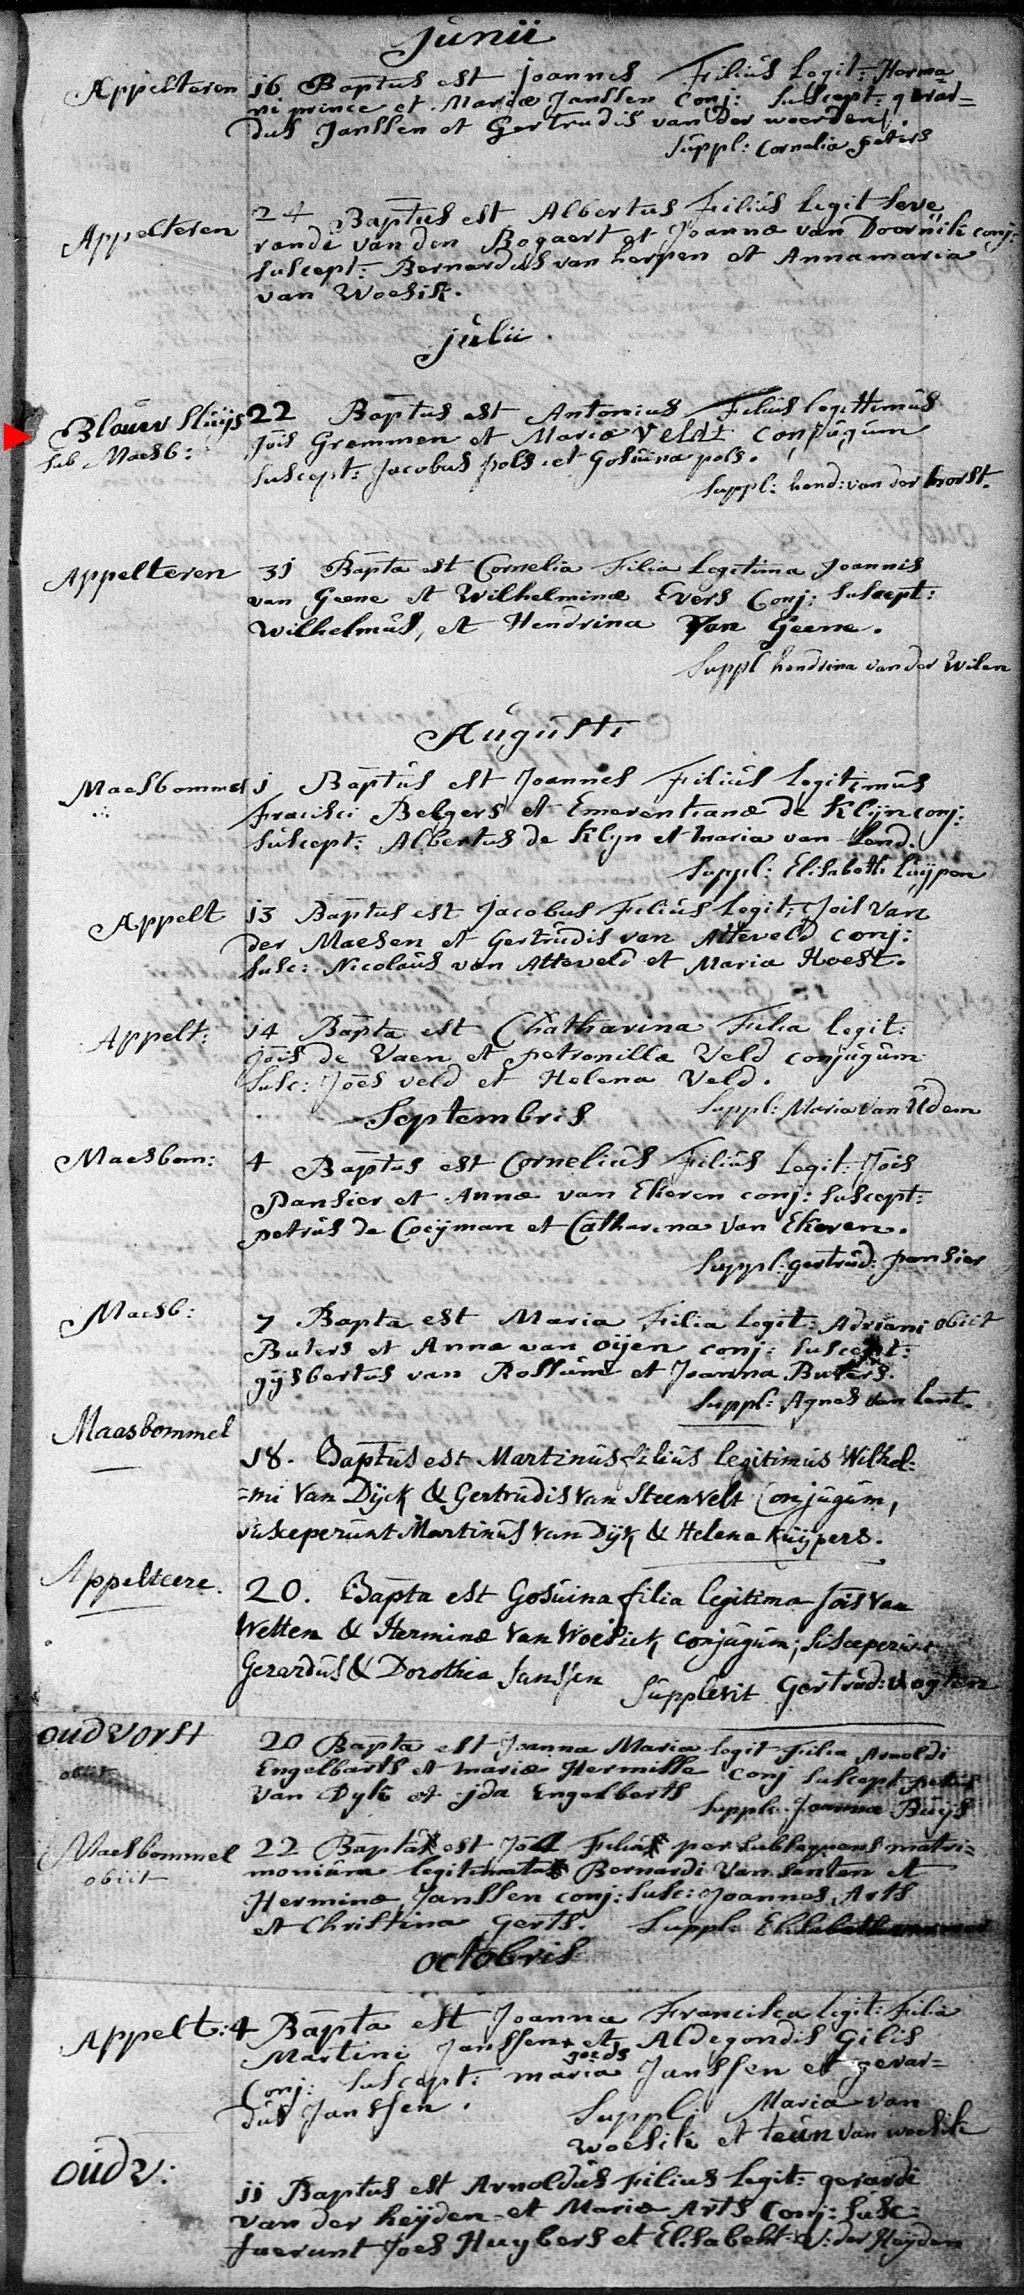 Junii
Appelteren 16 Baptus est Joannes Filius Legit: Herma
ni prince et Mariæ Janssen Conj: Suscept: gerar=
dus Janssen et Gertrudis van der weerden.
Suppl: Cornelia peters
Appelteren 24 Baptus est Albertus Filius Legit Seve
rende van den Bogaert et Joannæ van Doornik conj:
Suscept: Bernardus van herpen et Annamaria
van Woesik.
julii
Blauw Sluijs 22 Baptus est Antonius Filius legittimus
sub Maesb: Jois Gremmen et Mariæ Veldt conjugum
Suscept: Jacobus pols et Gosuina pols.
Suppl: hend: van der horst.
Appelteren 31 Bapta est Cornelia Filia Legitima Joannis
van Geene et Wilhelminæ Evers Conj: Suscept:
Wilhelmus, et Hendrina Van Geene.
Suppl hendrina van der Wilen
Augusti
Maesbommel 1 Baptus est Joannes Filius legitimus
Belgers et Emerentianæ de Klijn conj:
Suscept: Albertus de Klyn et maria van
Suppl: Elisabeth Cuijpen
Appelt 13 Baptus est Jacobus Filius Legit: Jois van
der Maesen et Gertrudis van Atteveld conj:
Susc: Nicolaus van Atteveld et Maria Hoest.
Appelt: 14 Bapta est Chatharina Filia legit:
Jois de Vaen et petronillæ Veld conjugum
Susc: Joes veld et Helena Veld.
Septembris Suppl: Maria van Udem
Maesbom: 4 Baptus est Cornelius Filius Legit: Jois
Pansier et Annæ van Ekeren conj: Suscept:
petrus de Cocijman et Catharina van Ekeren.
Suppl: gertrud: pansier
Maesb: 7 Bapta est Maria Filia Legit: Adriani obiit
Buters et Annæ van oijen conj: Suscept:
gijsbertus van Rossum et Joanna Buters.
Suppl: Agnes van Lent.
Maasbommel
18. Baptus est Martinus filius legitimus Wilhel=
=mi Van Dijck & Gertrudis Van Steenvelt Conjugum,
susceperunt Martinus Van Dijk & Helena Kuijpers.
Appelteere. 20. Bapta est Gosuina filia legitima Jois Van
Wetten & Herminæ Van Woesick conjugum; Susceperunt
Gerardus & Dorothea Janssen Supplevit Gertrud:
oudvorst 20 Bapta est Joanna Maria legit Filia Arnoldi
obiit Engelbarts et mariæ Hermisse conj Suscept petrus
Van Dyk et jda Engelberts
Suppl: Joanna Buijs
Maesbommel 22 Bapta est Filia per subsequens matri=
obiit monium legitimata Bernardi Van Santen et
Herminæ Janssen conj: Susc: Joannes Arts
et Christina Gerts. Suppl:
octobris
Appelt: 4 Bapta est Joanna Francisca legit: Filia
Martini Janssen et Aldegondis Gilis
Conj: Suscept: maria Janssen et gerar=
dus Janssen. Suppl: Maria van
woesik et teun van woesik
oudv:
11 Baptus est Arnoldus Filius Legit: gerardi
van der heijden et Mariæ Arts Conj: Susc=
fuerunt Joes Huybers et Elisabeht: V: der Heijden